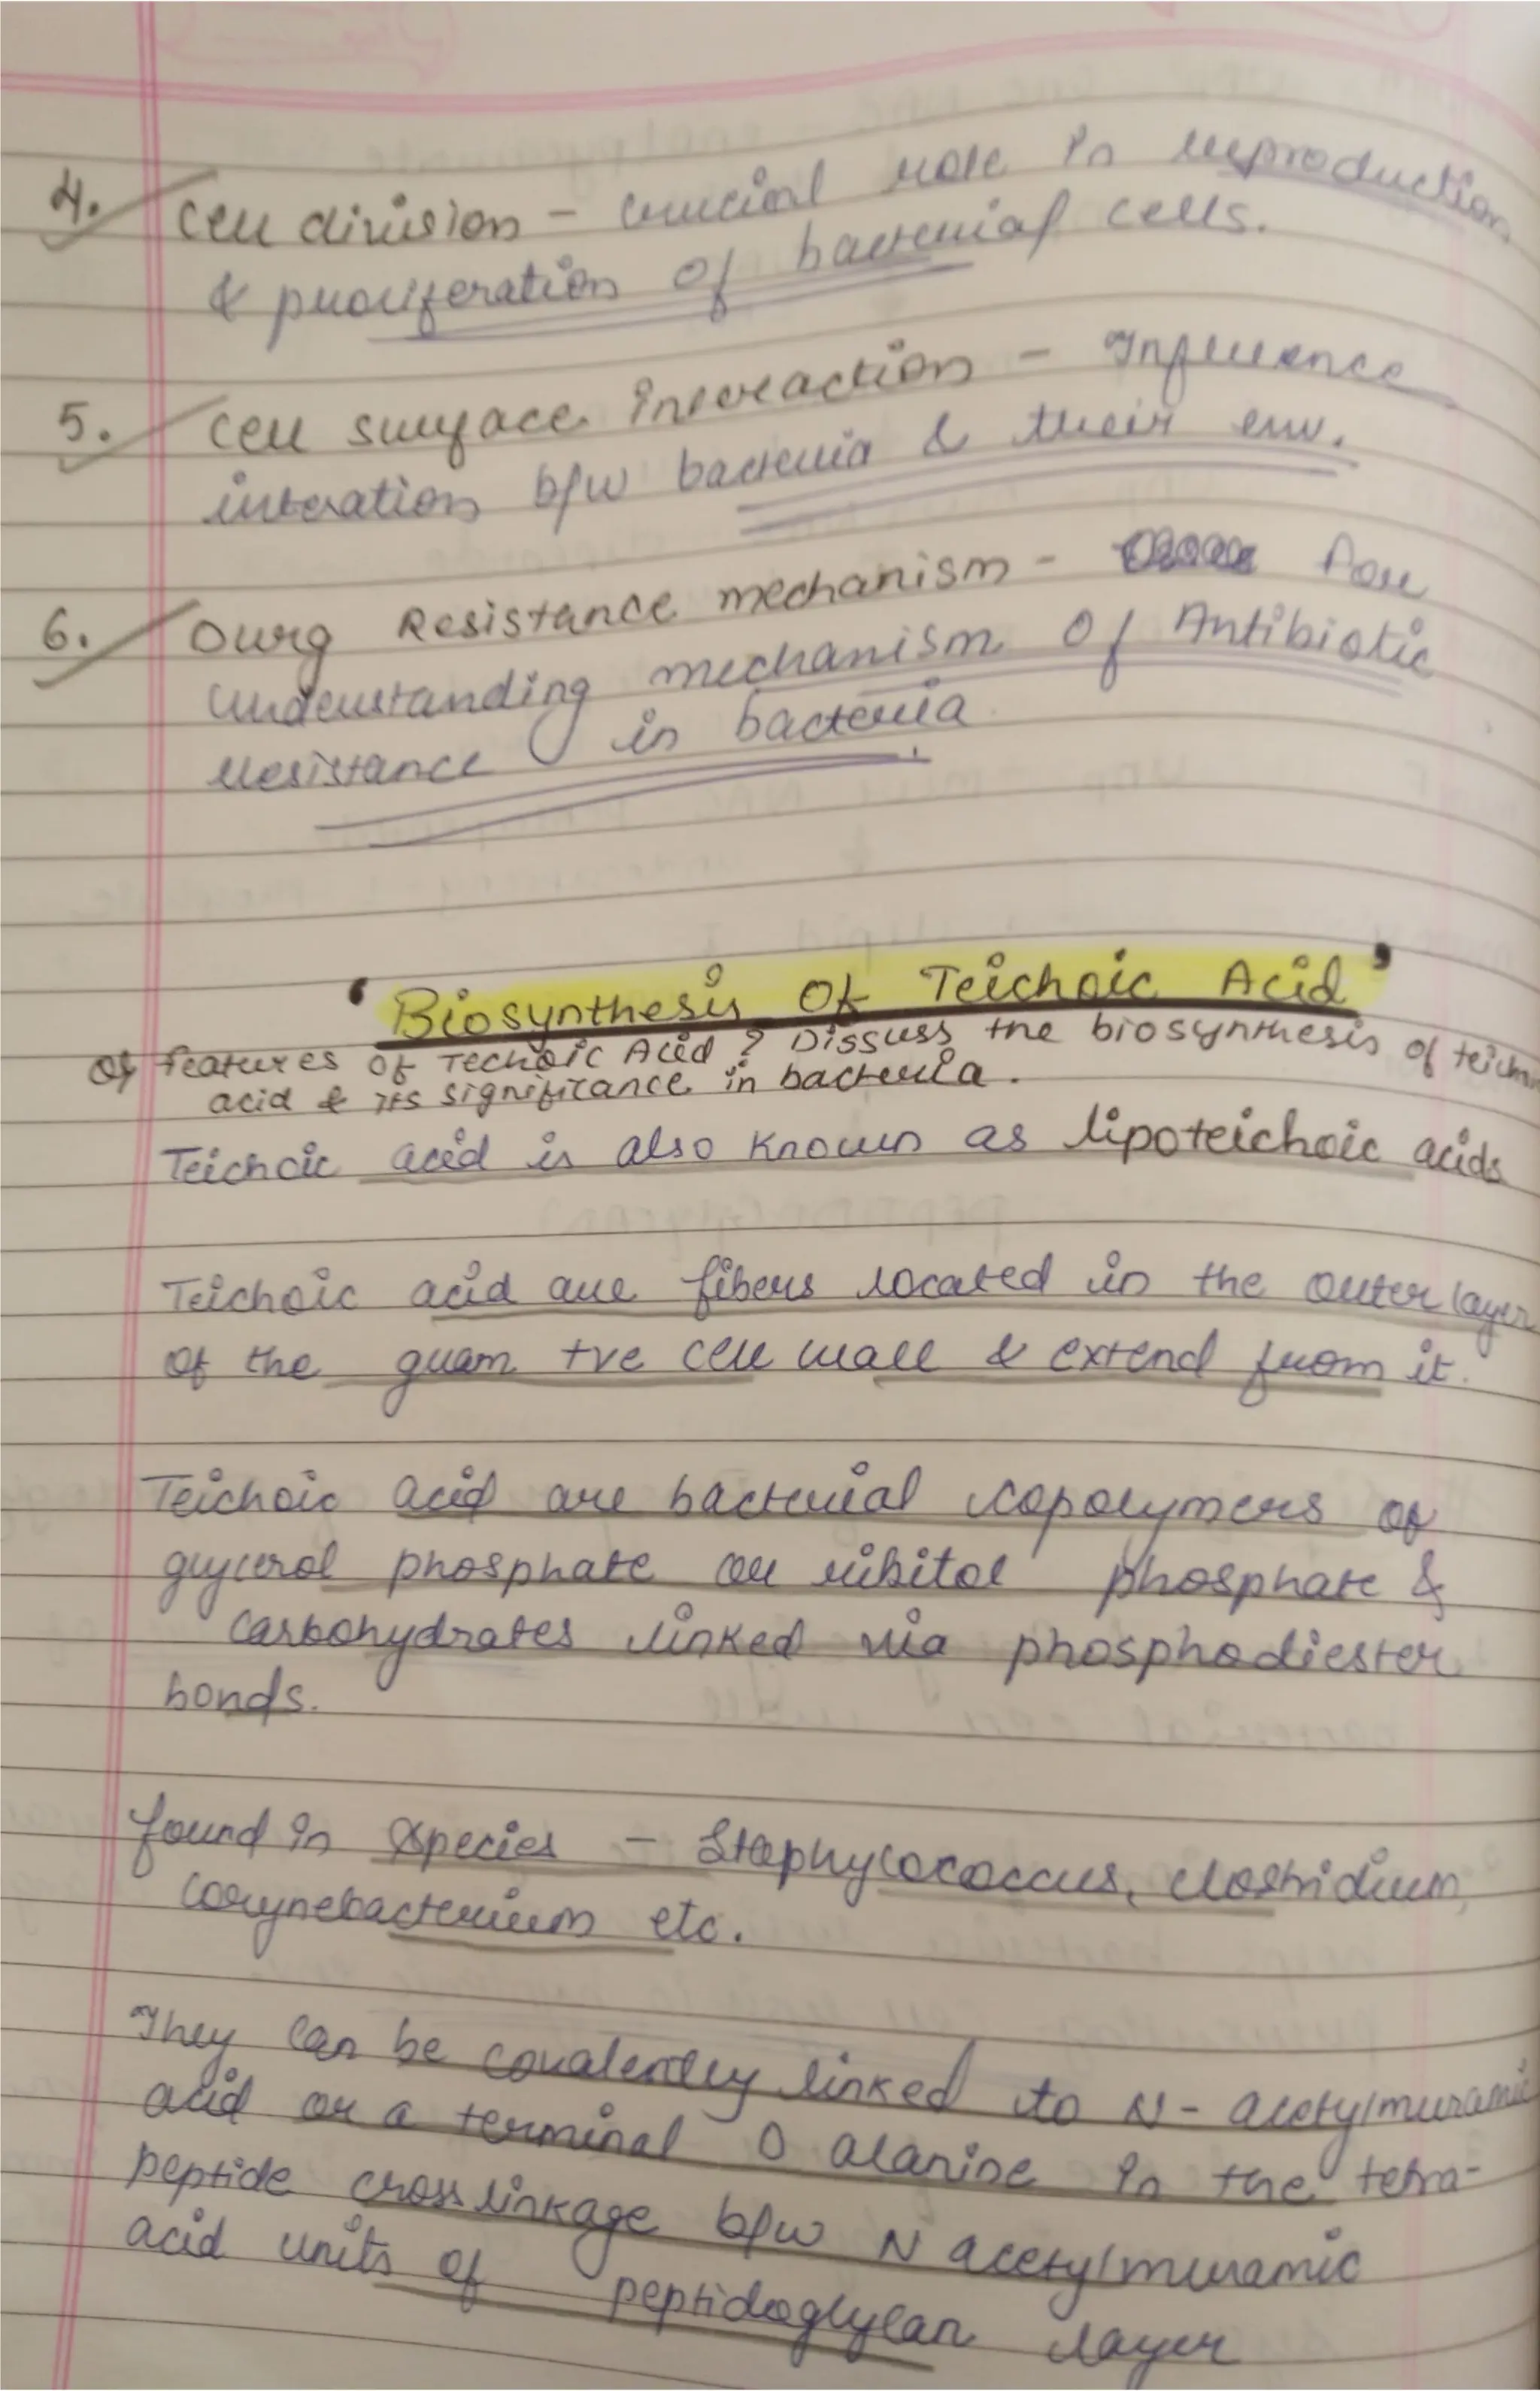 4. Cell division - crucial role in reproduction
& proliferation of bacterial cells.
5. Cell surface interaction - Influence
interation b/w bacteria & their env.
6. Durg Resistance mechanism - For
understanding mechanism of Antibiotic
resistance in bacteria.
'Biosynthesis Of Teichoic Acid'
Q features of Techoic Acid? Dissuss the biosynthesis of teich
acid & its significance in bacteria.
Teichoic acid is also known as lipoteichoic acids
Teichoic acid are fibers located in the outer layer
of the gram +ve cell wall & extend from it.
Teichoic acid are bacterial copolymers of
glycerol phosphate or ribitol phosphate &
carbohydrates linked via phosphodiester
bonds.
found in species - Staphylococcus, clostridium,
corynebacterium etc.
They can be covalently linked to N- acetylmuramic
acid or a terminal D alanine in the tetra-
peptide crosslinkage b/w N acetylmuramic
acid units of peptidoglycan layer